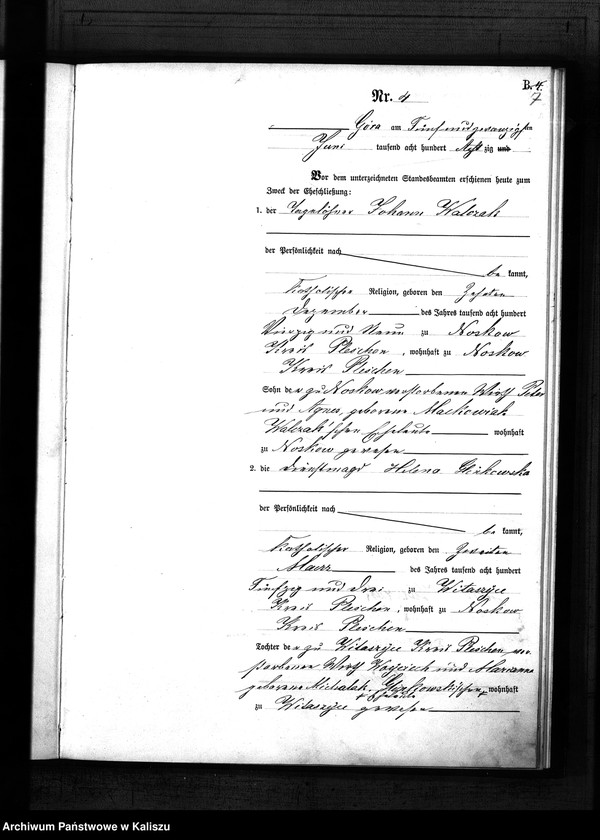 B. 4.
7
Nr. 4
Góra am Fünfundzwanzigsten
Juni tausend acht hundert Achtzig und
Vor dem unterzeichneten Standesbeamten erschienen heute zum
Zweck der Eheschließung:
1. der Tagelöhner Johann Walczak
der Persönlichkeit nach
be kannt,
katholischer Religion, geboren den Zehnten
Dezember des Jahres tausend acht hundert
Vierzig und Neun zu Noskow
Kreis Pleschen, wohnhaft zu Noskow
Kreis Pleschen
Sohn der zu Noskow verstorbenen Wirth Peter
und Agnes, geborene Maćkowiak
Walczak'schen Eheleute wohnhaft
zu Noskow gewesen
2. die Dienstmagd Helena
der Persönlichkeit nach
be kannt,
katholischer Religion, geboren den Zweiten
Maerz des Jahres tausend acht hundert
Fünfzig und drei zu Witaszyce
Kreis Pleschen, wohnhaft zu Noskow
Kreis Pleschen
Tochter der zu Witaszyce Kreis Pleschen ver-
storbenen Wirth Woyciech und Marianna
geborene Michalak, wohnhaft
+ Eheleute
zu Witaszyce gewesen
Archiwum Państwowe w Kaliszu